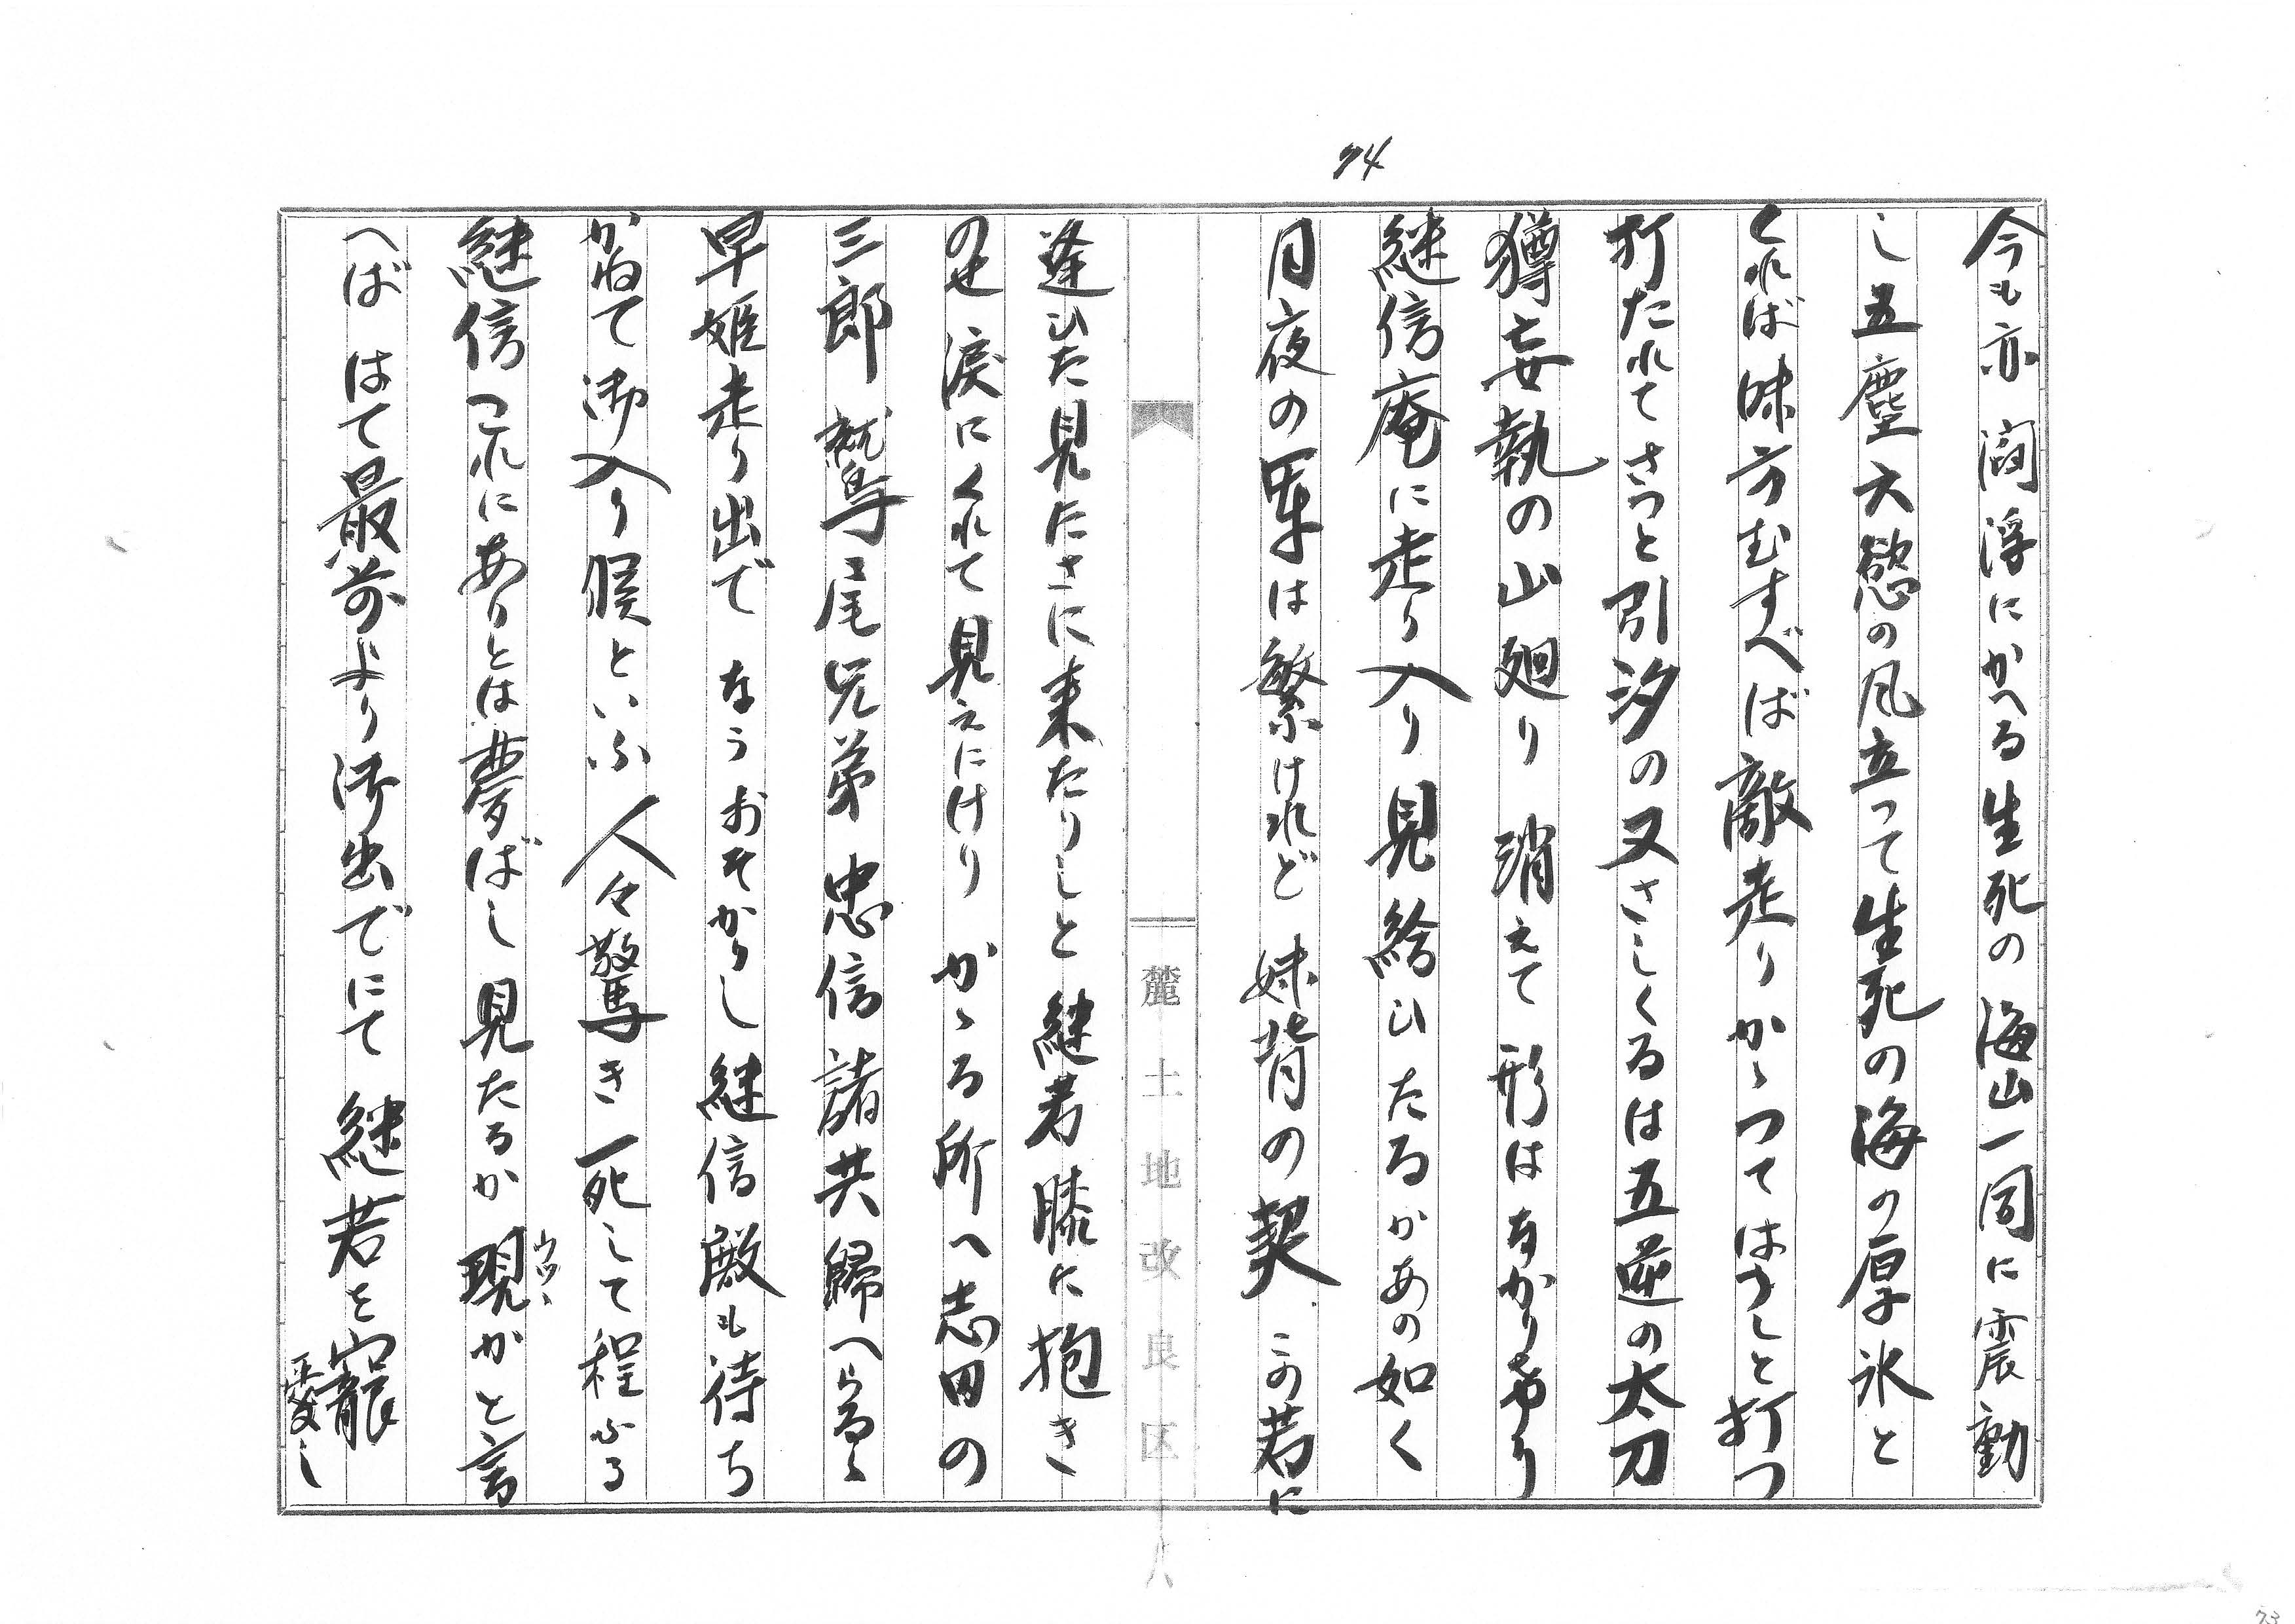 74
今も亦 閻浮にかへる生死の海山一同に震動
し 五塵六慾の風立って生死の海の厚氷と
くれば味方むすべば敵走りかゝつてはつしと打つ
打たれてさつと引汐の又さしくるは五逆の太刀
獨妄執の山廻り 消えて形はなかりけり
継信庵に走り入り見給ひたるかあの如く
月夜の軍は繁けれど 妹背の契 この若に
逢ひた見たさに来たりしと 継若膝に抱き
のせ 涙にくれて見えにけり かゝる所へ志田の
三郎 鷲尾兄弟 忠信諸共歸へらるゝ
早姫走り出で なうおそかりし継信殿も待ち
かねて御入り候といふ 人々驚き 死して程ふる
継信これにありとは夢ばし見たるか現かと言
ウツゝ
へば はて最前より御出でにて 継若を寵
愛し
麓土地改良区